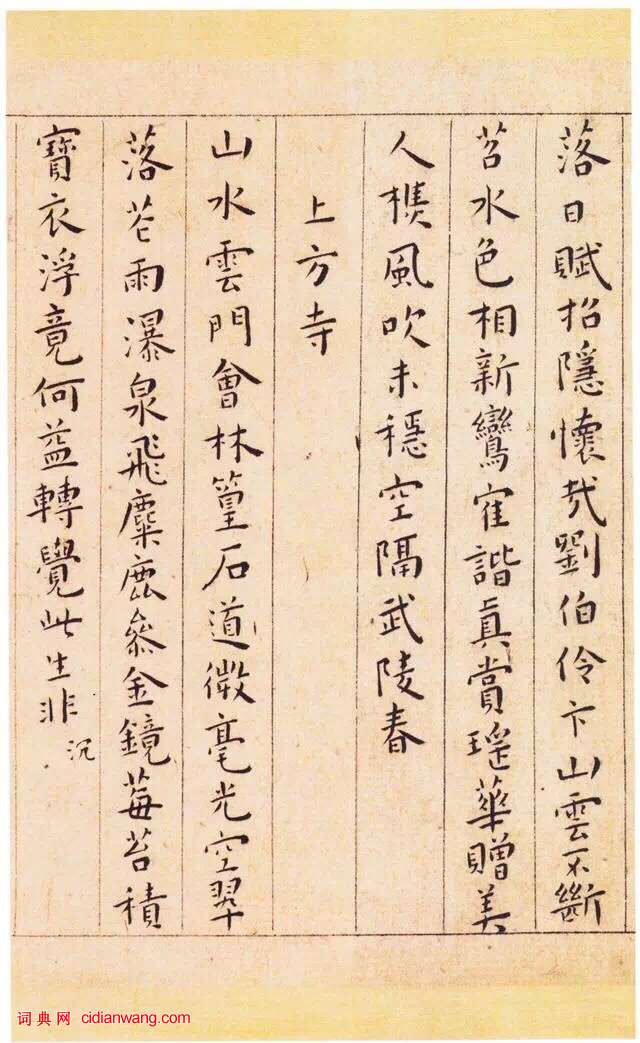 落日賦招隱懷哉劉伯伶卞山雲不斷
苕水色相新鸞寉諧真賞瑶華贈美
人樵風吹未穩空隔武陵春
上方寺
山水雲門會林篁石道微毫光空翠
落花雨瀑泉飛麋鹿叅金鏡莓苔積
寶衣浮竟何益轉覺此生非
沉
词典网 cidianwang.com